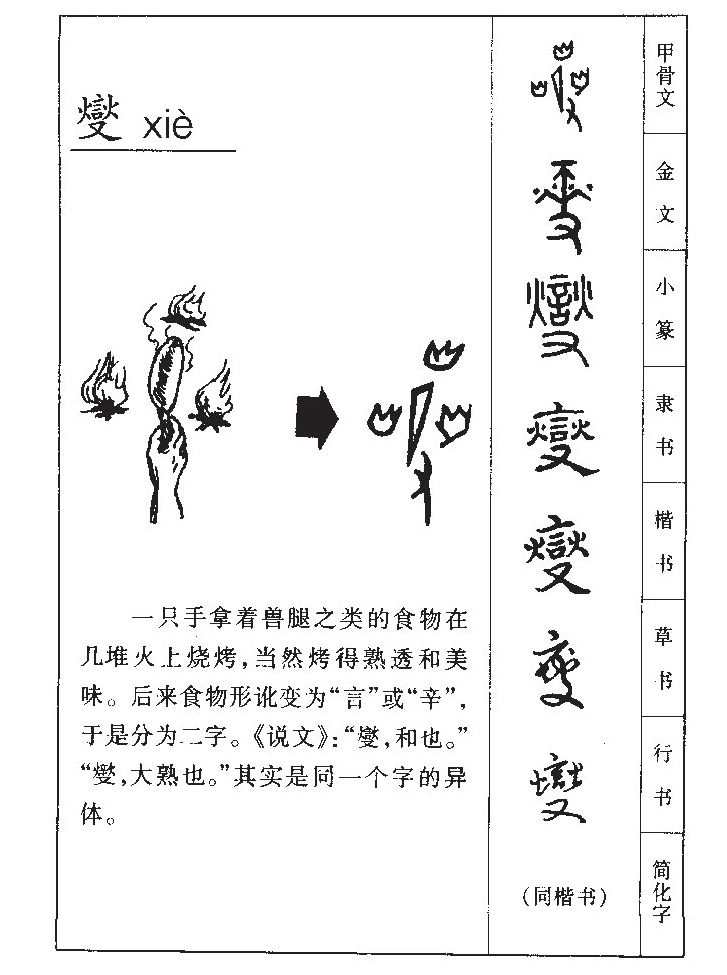 燮 xiè
一只手拿着兽腿之类的食物在
几堆火上烧烤，当然烤得熟透和美
味。后来食物形讹变为“言”或“辛”，
于是分为二字。《说文》：“燮，和也。”
“，大熟也。”其实是同一个字的异
体。
甲骨文
金文
小篆
隶书
燮
楷书
燮
草书
行书
简化字
（同楷书）